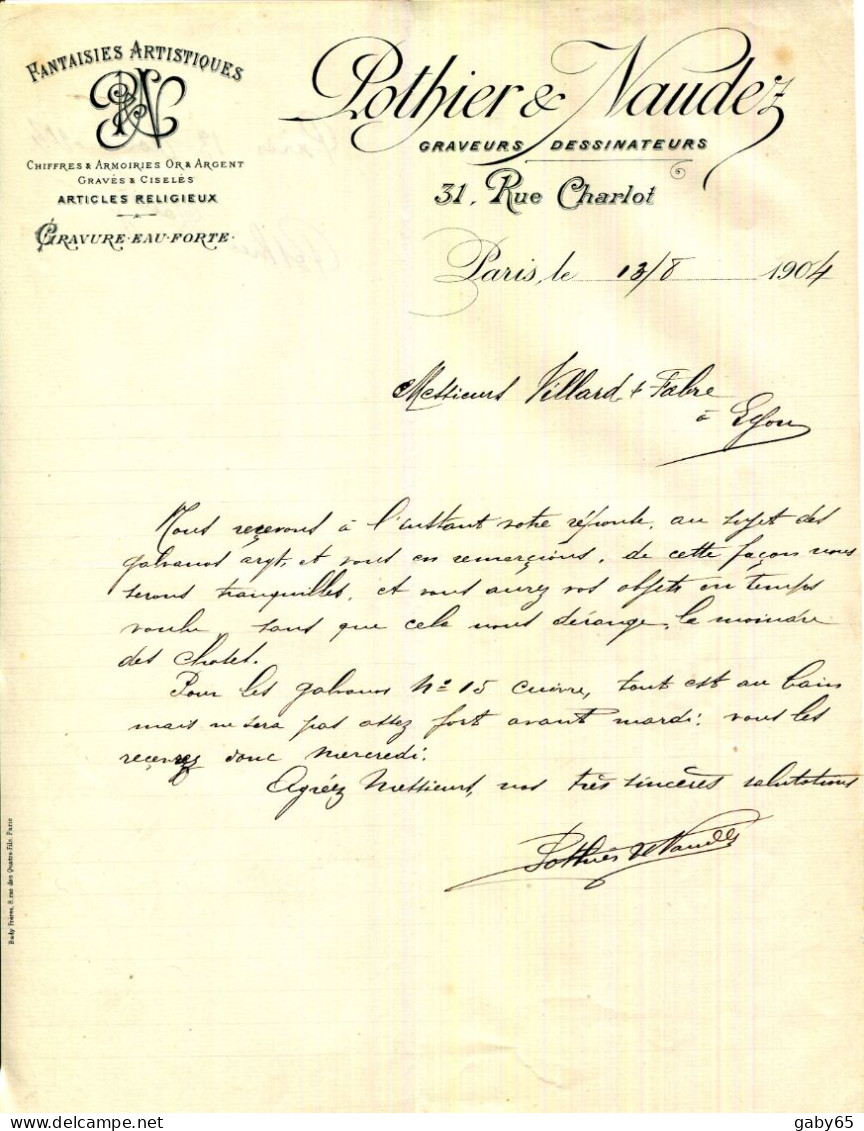 FANTAISIES ARTISTIQUES
PN
CHIFFRES & ARMOIRIES OR & ARGENT
GRAVÉS & CISELÉS
ARTICLES RELIGIEUX
GRAVURE·EAU·FORTE·
Pothier & Naudez
GRAVEURS DESSINATEURS
31, Rue Charlot
Paris, le 13/8 1904
Messieurs Villard & Fabre
à Lyon
Nous recevons à l'instant votre réponse, au sujet des
galvanos argt, et vous en remerçions, de cette façon nous
serons tranquilles, et vous aurez vos objets en temps
voulu, sans que cela nous dérange le moindre
des choses.
Pour les galvanos No 15 cuivre, tout est au bain
mais ne sera pas assez fort avant mardi: vous les
reçevrez donc mercredi.
Agréez Messieurs, nos très sincères salutations
Pothier & Naudez
Budy Frères, 8, rue des Quatre-Fils, Paris
delcampe.net
gaby65